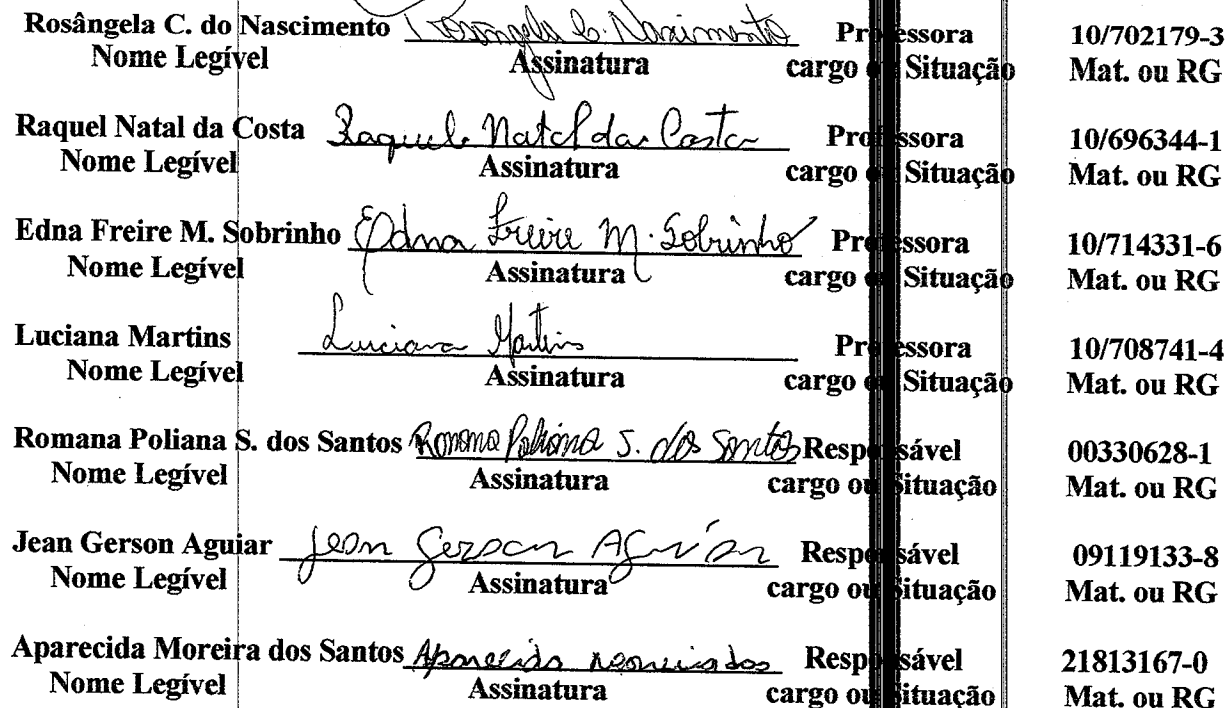 Rosângela C. do Nascimento Rosangela C. Nascimento Professora 10/702179-3
Nome Legível Assinatura cargo ou Situação Mat. ou RG
Raquel Natal da Costa Raquel Natal da Costa Professora 10/696344-1
Nome Legível Assinatura cargo ou Situação Mat. ou RG
Edna Freire M. Sobrinho Edna Freire M. Sobrinho Professora 10/714331-6
Nome Legível Assinatura cargo ou Situação Mat. ou RG
Luciana Martins Luciana Martins Professora 10/708741-4
Nome Legível Assinatura cargo ou Situação Mat. ou RG
Romana Poliana S. dos Santos Romana Poliana S. dos Santos Responsável 00330628-1
Nome Legível Assinatura cargo ou Situação Mat. ou RG
Jean Gerson Aguiar Jean Gerson Aguiar Responsável 09119133-8
Nome Legível Assinatura cargo ou Situação Mat. ou RG
Aparecida Moreira dos Santos Aparecida Responsável 21813167-0
Nome Legível Assinatura cargo ou Situação Mat. ou RG